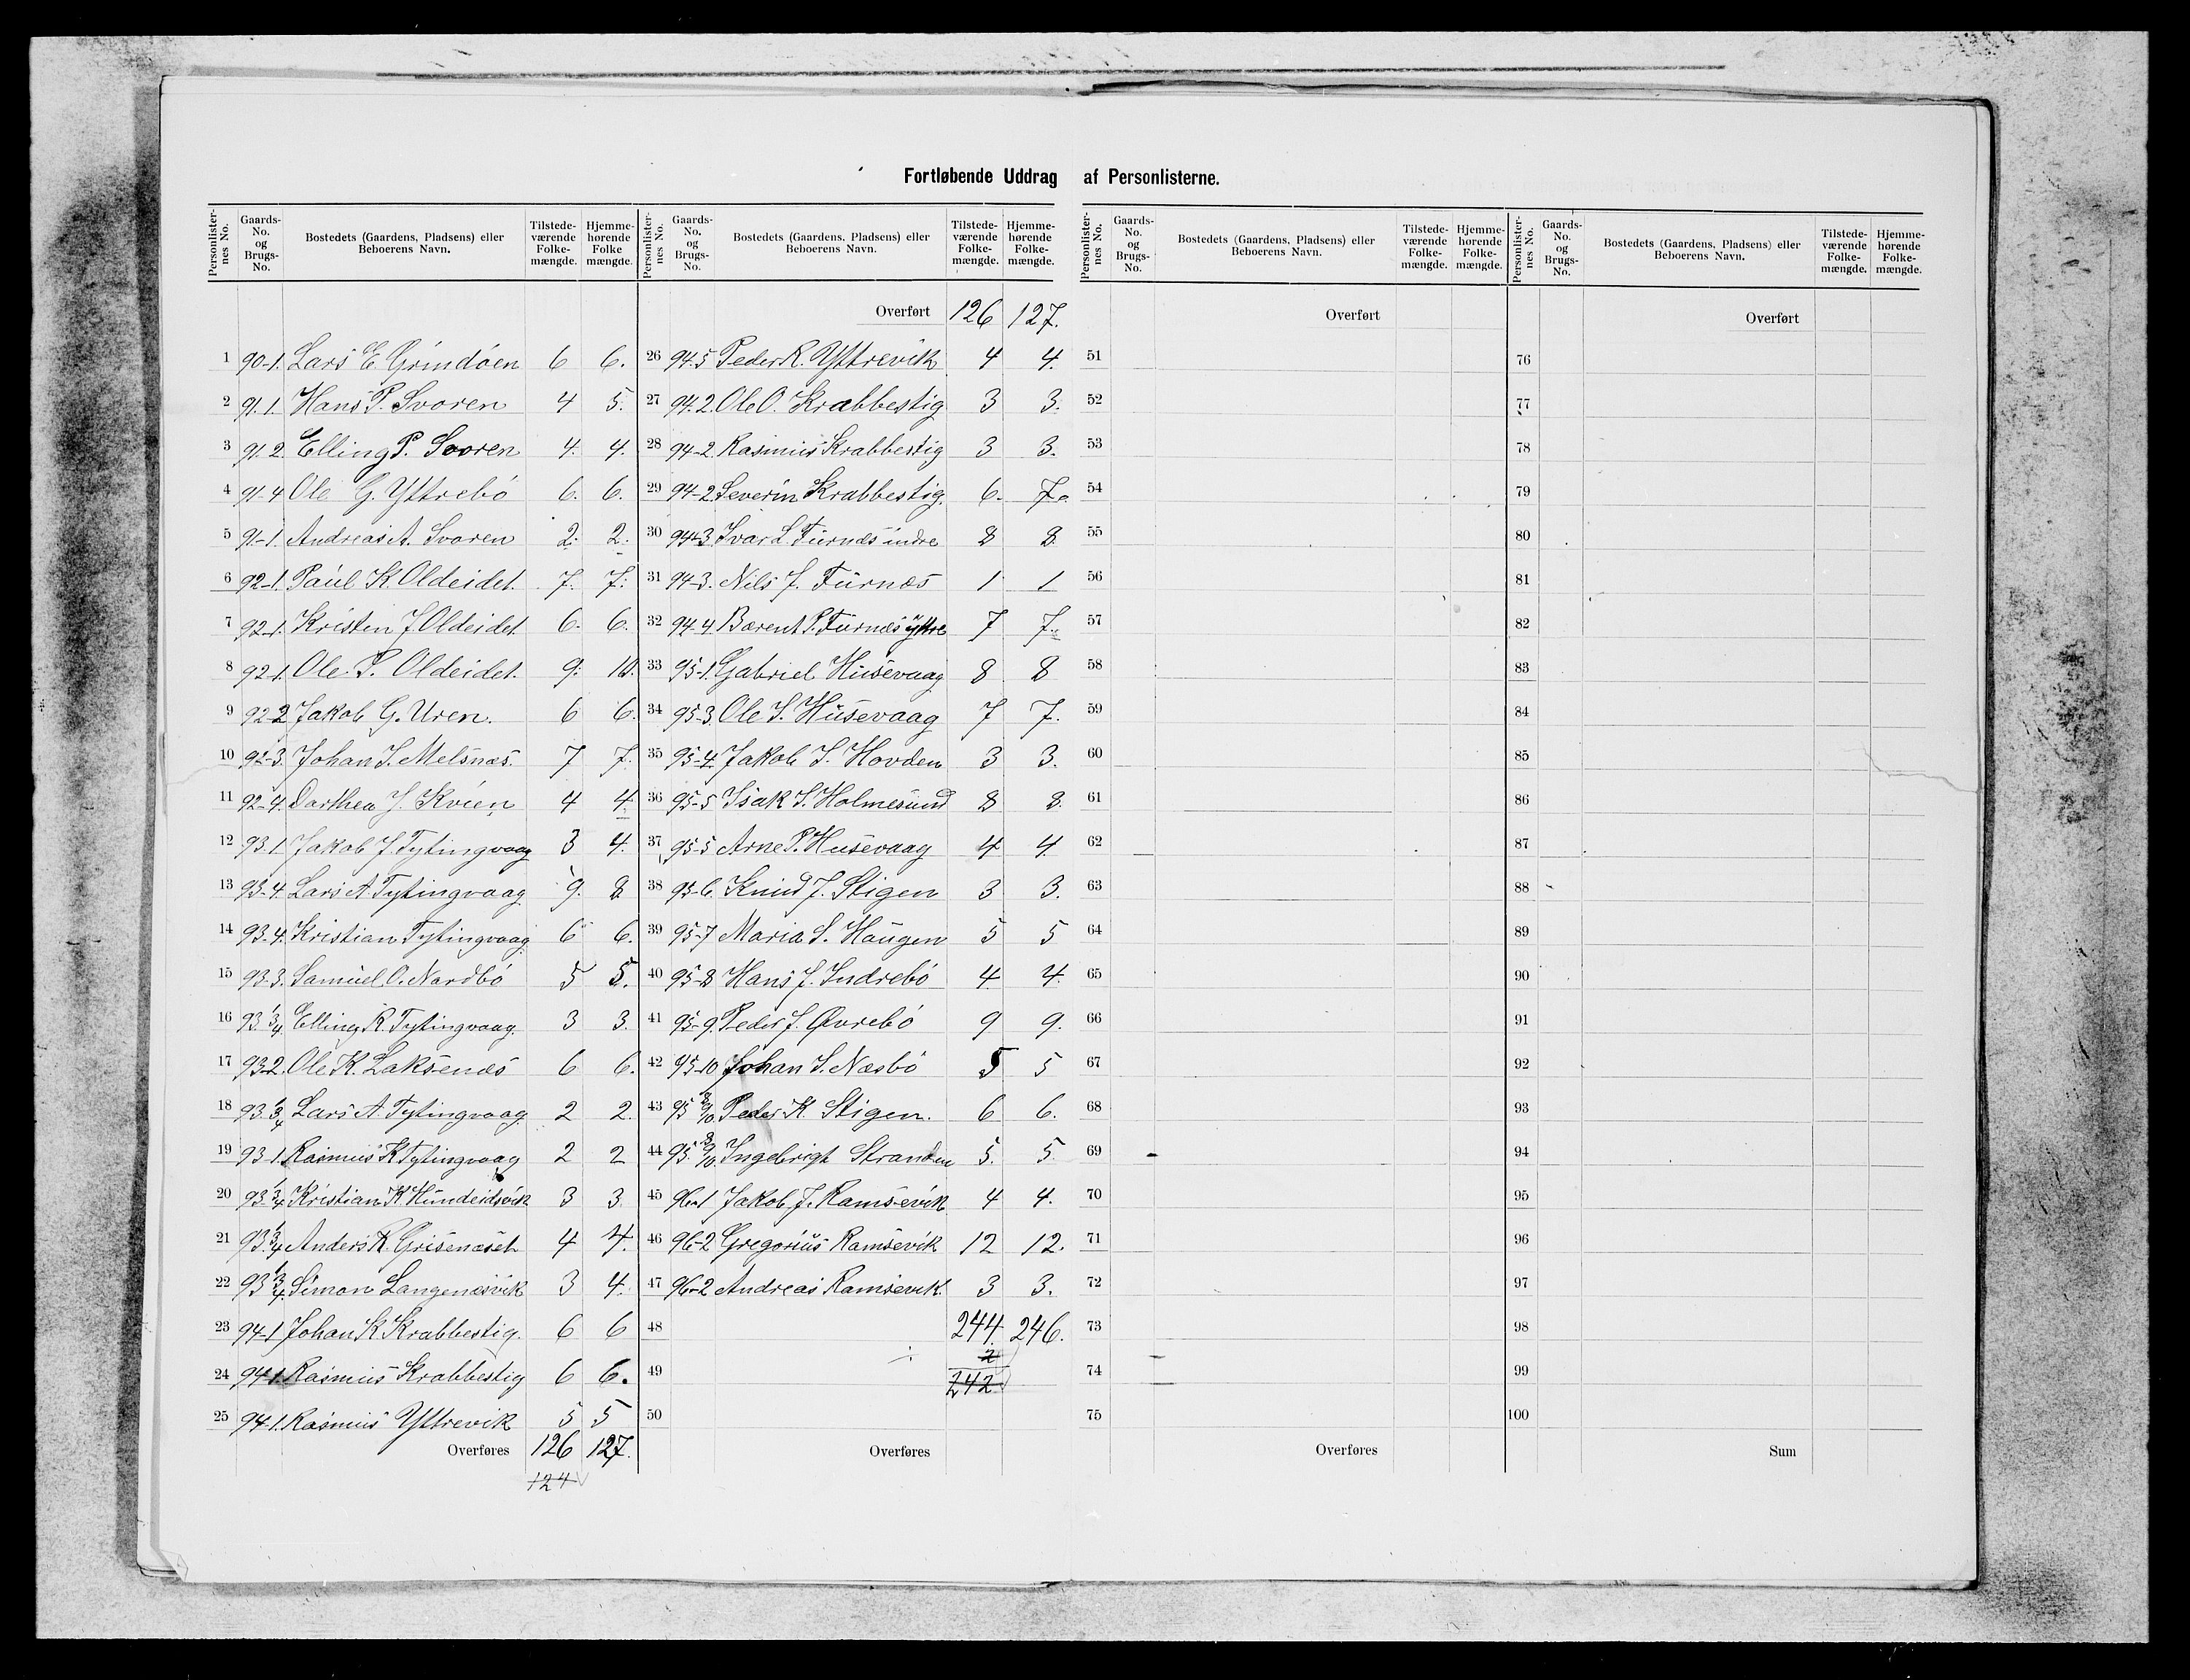 Fortløbende Uddrag af Personlisterne.
Personlisternes No. Gaards-No. og Brugs-No. Bostedets (Gaardens, Pladsens) eller Beboerens Navn. Tilstedeværende Folkemængde. Hjemmehørende Folkemængde.
1 90-1. Lars E Grindöen 6 6.
2 91.1. Hans P. Svoren 4 5.
3 91.2 Elling P. Svoren 4. 4.
4 91-4 Ole G. Yttrebö 6. 6.
5 91-1. Andreas A. Svoren 2. 2.
6 92-1. Paul K. Oldeidet. 7. 7.
7 92-1. Kristen J Oldeidet 6. 6.
8 92-1. Ole P. Oldeidet. 9. 10.
9 92-2 Jakob G. Uren. 6 6.
10 92-3. Johan S. Melsnæs. 7 7.
11 92-4. Darthea J. Kvien 4 4.
12 93.1 Jakob J. Tytingvaag 3 4.
13 93-4. Lars A. Tytingvaag 9. 8.
14 93-4. Kristian Tytingvaag. 6 6.
15 93-3. Samuel O. Nordbö 5 5.
16 93. 1/3/4 Elling R. Tytingvaag. 3 3.
17 93-2. Ole K. Laksenæs 6 6.
18 93. 1/3/4 Lars A. Tytingvaag. 2 2.
19 93-1. Rasmus K Tytingvaag 2 2
20 93. 1/3/4 Kristian K Hundeidsvik 3 3
21 93. 1/3/4 Anders R. Grisenæset 4 4.
22 93 1/3/4. Simon Langenæsvik 3 4.
23 94-1 Johan K Krabbestig. 6 6
24 94-1. Rasmus Krabbestig 6 6.
25 94-1. Rasmus Yttrevik 5 5
Overføres 126 127.
124
Personlisternes No. Gaards-No. og Brugs-No. Bostedets (Gaardens, Pladsens) eller Beboerens Navn. Tilstedeværende Folkemængde. Hjemmehørende Folkemængde.
Overført 126 127.
26 94.5 Peder R. Yttrevik 4 4.
27 94.2. Ole O. Krabbestig 3 3.
28 94-2. Rasmus Krabbestig 3 3.
29 94-2 Severin Krabbestig. 6. 7.
30 94-3. Ivar L. Furnæs indre 8 8
31 94-3. Nils J. Furnæs 1 1
32 94-4. Bærent P. Furnæs yttre 7 7.
33 95-1. Gabriel Husevaag 8 8
34 95-3. Ole S. Husevaag 7 7.
35 95-4. Jakob S. Hovden 3 3.
36 95-5 Isak S. Holmesund 8 8.
37 95-5 Arne P. Husevaag 4 4
38 95-6. Knud J. Stigen 3 3.
39 95-7 Maria S. Haugen 5 5
40 95-8 Hans J. Indrebö 4. 4.
41 95-9. Peder J. Øvrebö 9 9.
42 95-10 Johan S. Næsbö 5 5
43 95 8/9/10. Peder K. Stigen. 6 6.
44 95. 8/9/10. Ingebrigt Stranden 5. 5.
45 96-1 Jakob J. Ramsevik 4 4.
46 96-2 Gregorius Ramsevik 12 12.
47 96-2 Andreas Ramsevik. 3 3.
48 244. 246.
49 ÷ 2
242
50
Overføres
Personlisternes No. Gaards-No. og Brugs-No. Bostedets (Gaardens, Pladsens) eller Beboerens Navn. Tilstedeværende Folkemængde. Hjemmehørende Folkemængde.
Overført
51
52
53
54
55
56
57
58
59
60
61
62
63
64
65
66
67
68
69
70
71
72
73
74
75
Overføres
Personlisternes No. Gaards-No. og Brugs-No. Bostedets (Gaardens, Pladsens) eller Beboerens Navn. Tilstedeværende Folkemængde. Hjemmehørende Folkemængde.
Overført
76
77
78
79
80
81
82
83
84
85
86
87
88
89
90
91
92
93
94
95
96
97
98
99
100
Sum